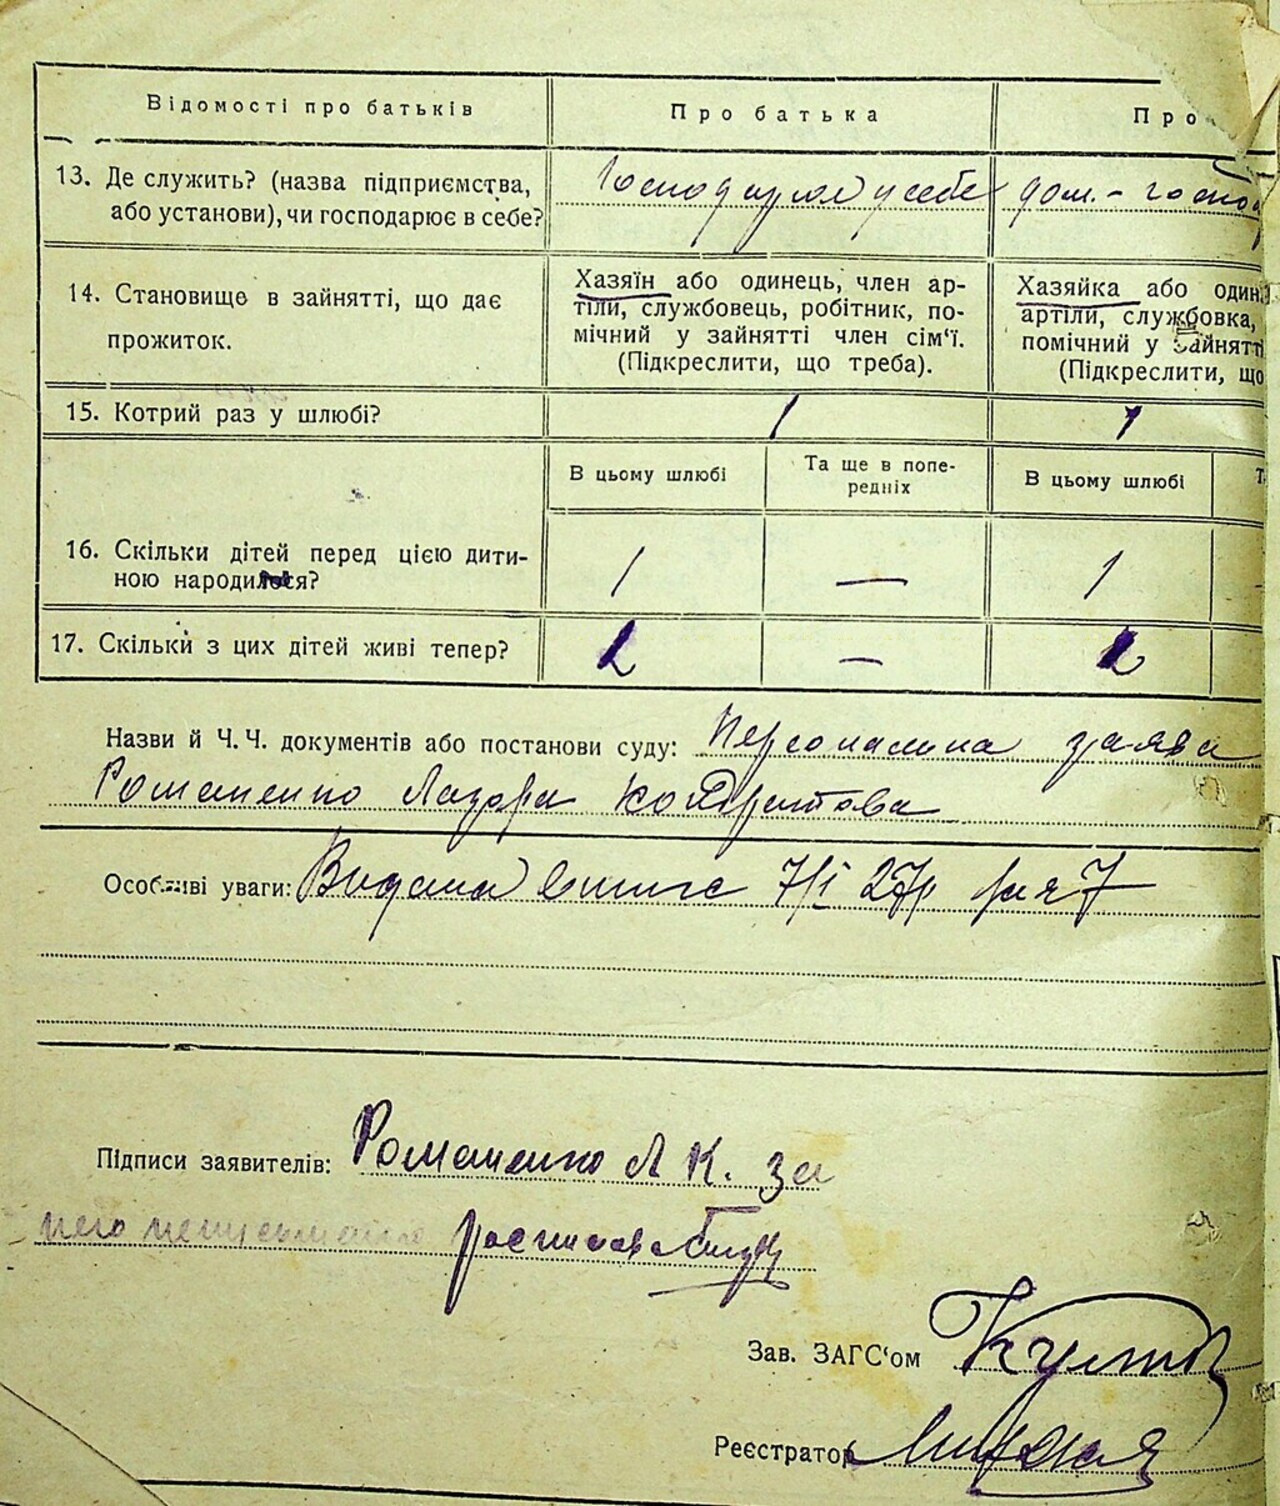 Відомості про батьків Про батька Про
13. Де служить? (назва підприємства, або установи), чи господарює в себе?
Господарює у себе
дом. - господ
14. Становище в зайнятті, що дає прожиток.
Хазяїн або одинець, член ар-
тіли, службовець, робітник, по-
мічний у зайнятті член сім'ї.
(Підкреслити, що треба).
Хазяйка або один
артіли, службовка,
помічний у зайнятті
(Підкреслити, що
15. Котрий раз у шлюбі? 1 1
В цьому шлюбі Та ще в попе-
редніх В цьому шлюбі
16. Скільки дітей перед цією дити-
ною народилося? 1 — 1
17. Скільки з цих дітей живі тепер? 2 — 2
Назви й Ч. Ч. документів або постанови суду: Персональна заява
Романенко Лазора Кондратова
Особливі уваги: Видана 7/I 27р 7
Підписи заявителів: Романенко Л К. за
него неписьменного росписався
Зав. ЗАГС'ом
Реєстратор